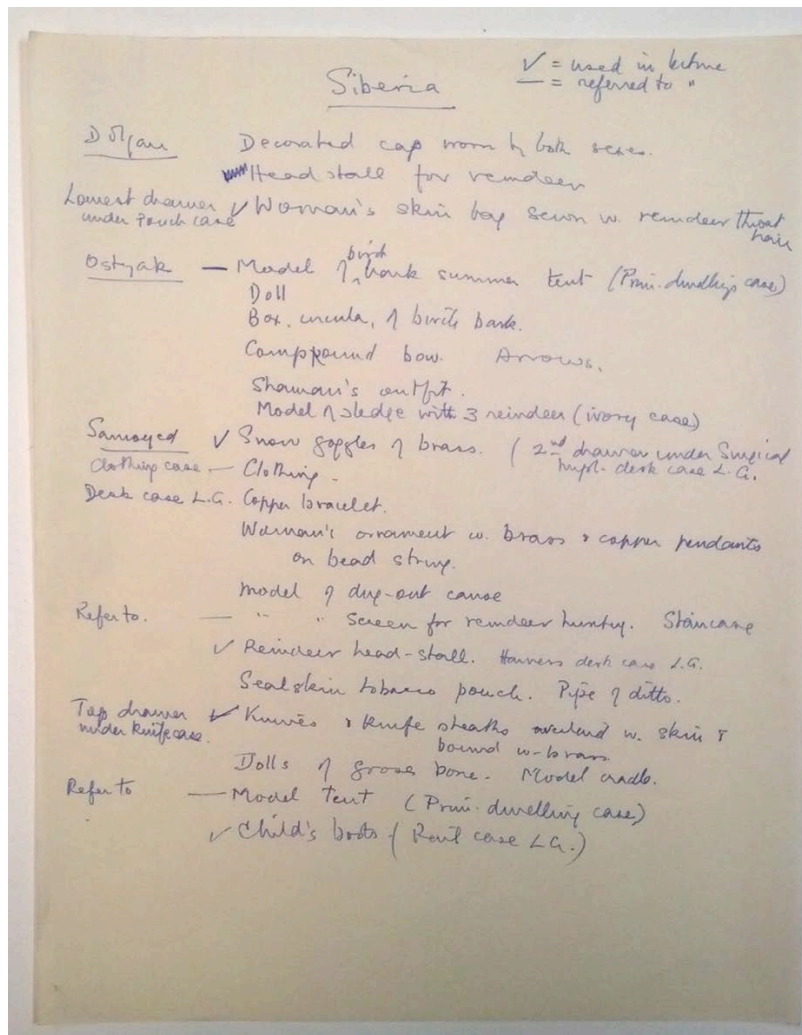 Siberia
✓ = used in lecture
— = referred to "
Dolgan Decorated cap worn by both sexes.
Head stall for reindeer
Lowest drawer under pouch case ✓ Woman's skin bag sewn w. reindeer throat hair
Ostyak — Model of birch bark summer tent (Prim. dwellings case)
Doll
Box, circular, of birch bark.
Compound bow. Arrows.
Shaman's outfit.
Model of sledge with 3 reindeer (ivory case)
Samoyed ✓ Snow goggles of brass. (2nd drawer under Surgical Impl. desk case L.G.
Clothing case — Clothing.
Desk case L.G. Copper bracelet.
Woman's ornament w. brass & copper pendants
on bead string.
Model of dug-out canoe
Refer to. — " " Screen for reindeer hunting. Staircase
✓ Reindeer head-stall. Harness desk case L.G.
Sealskin tobacco pouch. Pipe of ditto.
Top drawer under knife case. ✓ Knives & Knife sheaths overlaid w. skin &
bound w. brass
Dolls of goose bone. Model cradle.
Refer to — Model Tent (Prim. dwelling case)
✓ Child's boots ( case L.G.)